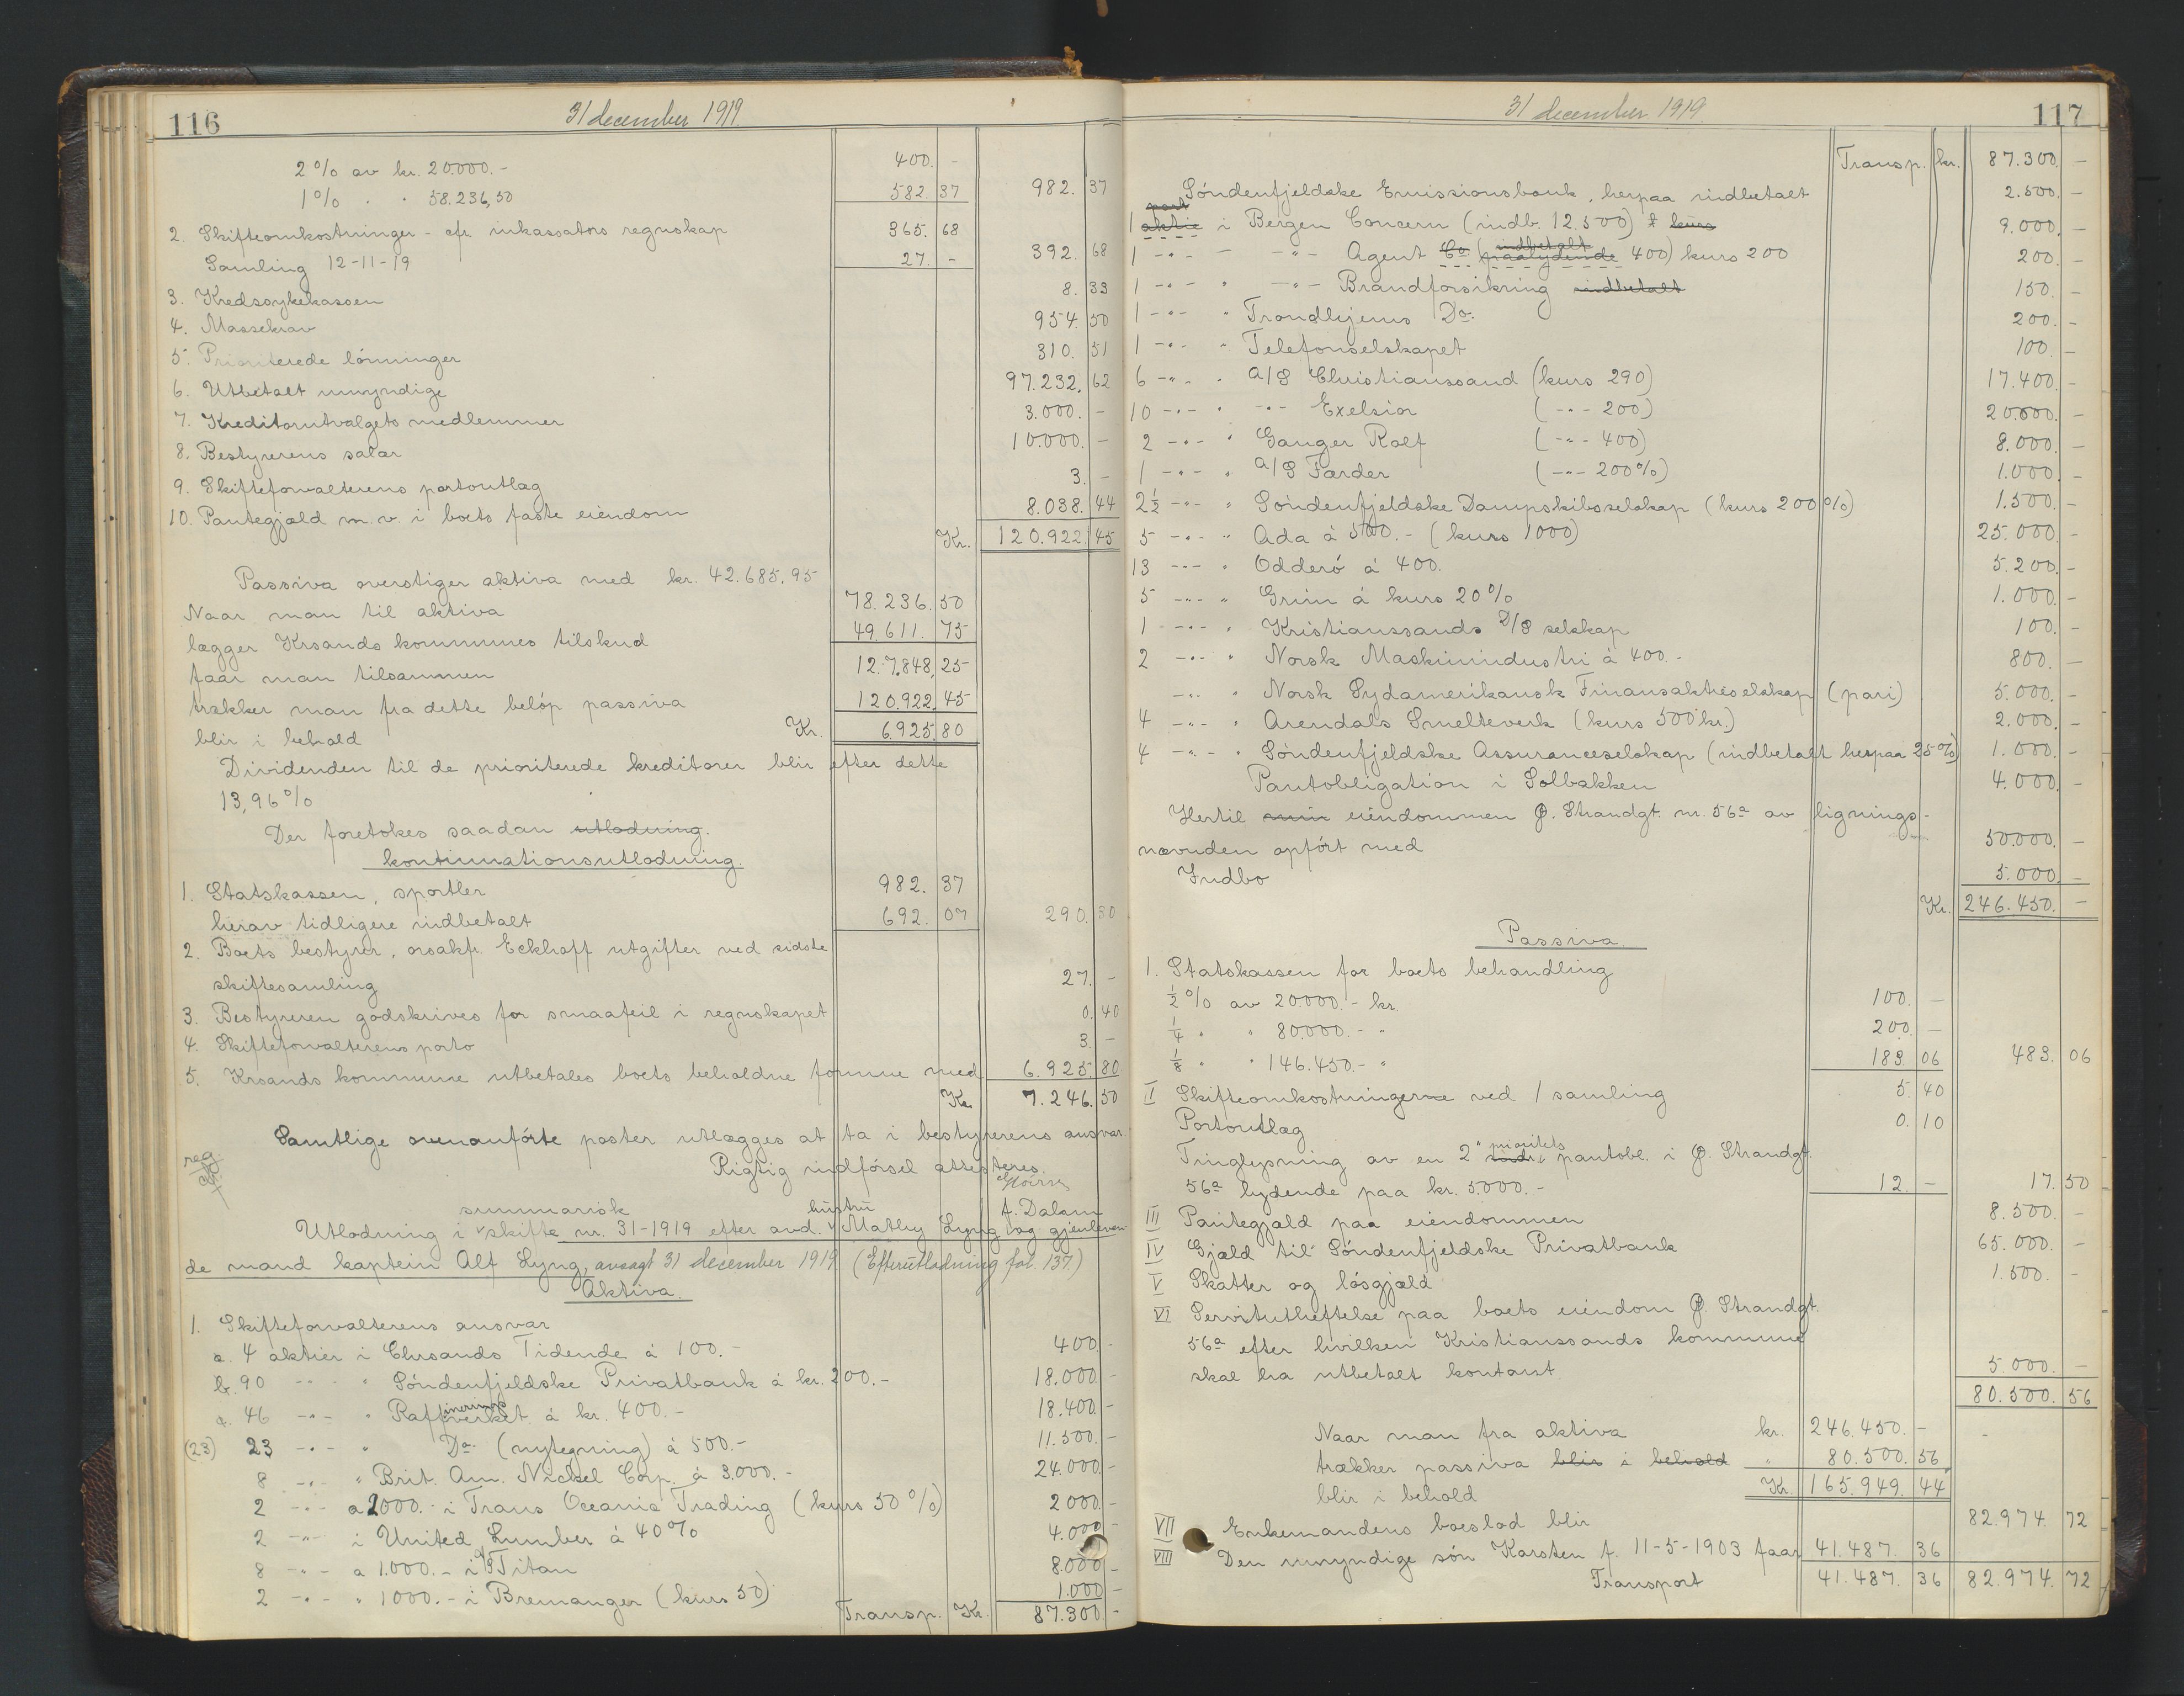 116
31 december 1919.
2 % av kr. 20.000.- 400. -
1 % " " 58.236,50 582. 37 982. 37
2. Skifteomkostninger - cfr. inkassators regnskap 365. 68
Samling 12-11-19 27. - 392. 68
3. Kredssykekassen 8. 33
4. Massekrav 954. 50
5. Prioriterede lönninger 310. 51
6. Utbetalt umyndige 97.232. 62
7. Kreditorutvalgets medlemmer 3.000. -
8. Bestyrerens salær 10.000. -
9. Skifteforvalterens portoutlæg 3. -
10. Pantegjæld m.v. i boets faste eiendom 8.038. 44
Kr. 120.922. 45
Passiva overstiger aktiva med kr. 42.685.95
Naar man til aktiva 78.236. 50
lægger Krsands kommunes tilskud 49.611. 75
faar man tilsammen 127.848, 25
trækker man fra dette belöp passiva 120.922. 45
blir i behold Kr. 6.925. 80
Dividenden til de prioriterede kreditorer blir efter dette
13,96 %
Der foretokes saadan utlodning.
kontinuationsutlodning.
1. Statskassen, sportler 982. 37
herav tidligere indbetalt 692. 07 290. 30
2. Boets bestyrer, orsakf. Eckhoff utgifter ved sidste
skiftesamling 27. -
3. Bestyreren godskrives for smaafeil i regnskapet 0. 40
4. Skifteforvalterens porto 3. -
5. Krsands kommune utbetales boets beholdne formue med 6.925. 80
Kr. 7.246. 50
Samtlige ovenanförte poster utlægges at ta i bestyrerens ansvar.
Rigtig indförsel attesteres.
reg
summarisk hustru f. Dalam
Utlodning i skifte nr. 31-1919 efter avd. Mathy Lyng og gjenleven-
de mand kaptein Alf Lyng, avsagt 31 december 1919 (Efterutlodning fol. 137)
Aktiva.
1. Skifteforvalterens ansvar
a. 4 aktier i Chrsands Tidende á 100.- 400. -
b. 90 -"- " Söndenfjeldske Privatbank á kr. 200.- 18.000. -
c. 46 -"- " Raffineringsverket á kr. 400.- 18.400. -
(23) 23 -"- " Do. (nytegning) á 500.- 11.500. -
8 -"- " Brit. Am. Nickel Corp. á 3.000.- 24.000. -
2 -"- a 2000.- i Trans Oceanic Trading (kurs 50 %) 2000. -
2 -"- i United Lumber á 40 % 4.000. -
8 -"- a 1.000.- i A/S Titan 8.000. -
2 -"- " 1000.- i Bremanger (kurs 50) 1.000 -
Transp. Kr. 87.300. -
31 december 1919.
117
Transp. kr. 87.300. -
Söndenfjeldske Emissionsbank, herpaa indbetalt 2.500. -
part
1 aktie i Bergen Concern (indb. 12.500) & kurs 9.000. -
indbetalt
1 -"- " -"- Agent Co (paalydende 400) kurs 200 200. -
1 -"- " -"- Brandforsikring indbetalt 150. -
1 -"- " Trondhjems Do. 200. -
1 -"- " Telefonselskapet 100. -
6 -"- " A/S Christianssand (kurs 290) 17.400. -
10 -"- " -"- Exelsior ( -"- 200) 20.000. -
2 -"- " Ganger Rolf ( -"- 400) 8.000. -
1 -"- " A/S Færder ( -"- 200 %) 1.000. -
2 ½ -"- " Söndenfjeldske Dampskibsselskap (kurs 200 %) 1.500. -
5 -"- " Ada á 500.- (kurs 1000) 25.000. -
13 -"- " Odderö á 400. 5.200. -
5 -"- " Grim á kurs 20 % 1.000. -
1 -"- " Kristianssands D/S selskap 100. -
2 -"- " Norsk Maskinindustri á 400.- 800. -
-"- " Norsk Sydamerikansk Finansaktieselskap (pari) 5.000. -
4 -"- " Arendals Smelteverk (kurs 500 kr.) 2.000. -
4 -"- " Söndenfjeldske Assuranceselskap (indbetalt herpaa 25 %) 1.000. -
Pantobligation i Solbakken 4.000. -
Hertil eiendommen Ø. Strandgt. nr. 56a av lignings-
nævnden opfört med 50.000. -
Indbo 5.000 -
Kr. 246.450. -
Passiva.
1. Statskassen for boets behandling
½ % av 20.000.- kr. 100. -
¼ " " 80.000.- " 200. -
⅛ " " 146.450.- " 183. 06 483. 06
II Skifteomkostningerne ved 1 samling 5. 40
Portoutlæg 0. 10
prioritets
Tinglysning av en 2" pantobl. i Ø. Strandgt.
56a lydende paa kr. 5.000.- 12. - 17. 50
III Pantegjæld paa eiendommen 8.500. -
IV Gjæld til Söndenfjeldske Privatbank 65.000. -
V Skatter og lösgjæld 1.500. -
VI Servitutheftelse paa boets eiendom Ø. Strandgt.
56a efter hvilken Kristianssands kommune
skal ha utbetalt kontant 5.000. -
80.500. 56
Naar man fra aktiva kr. 246.450. -
trækker passiva blir i behold " 80.500. 56
blir i behold Kr. 165.949. 44
VII Enkemandens boeslod blir 82.974. 72
VIII Den umyndige sön Karsten f. 11-5-1903 faar 41.487. 36
Transport 41.487. 36 82.974. 72